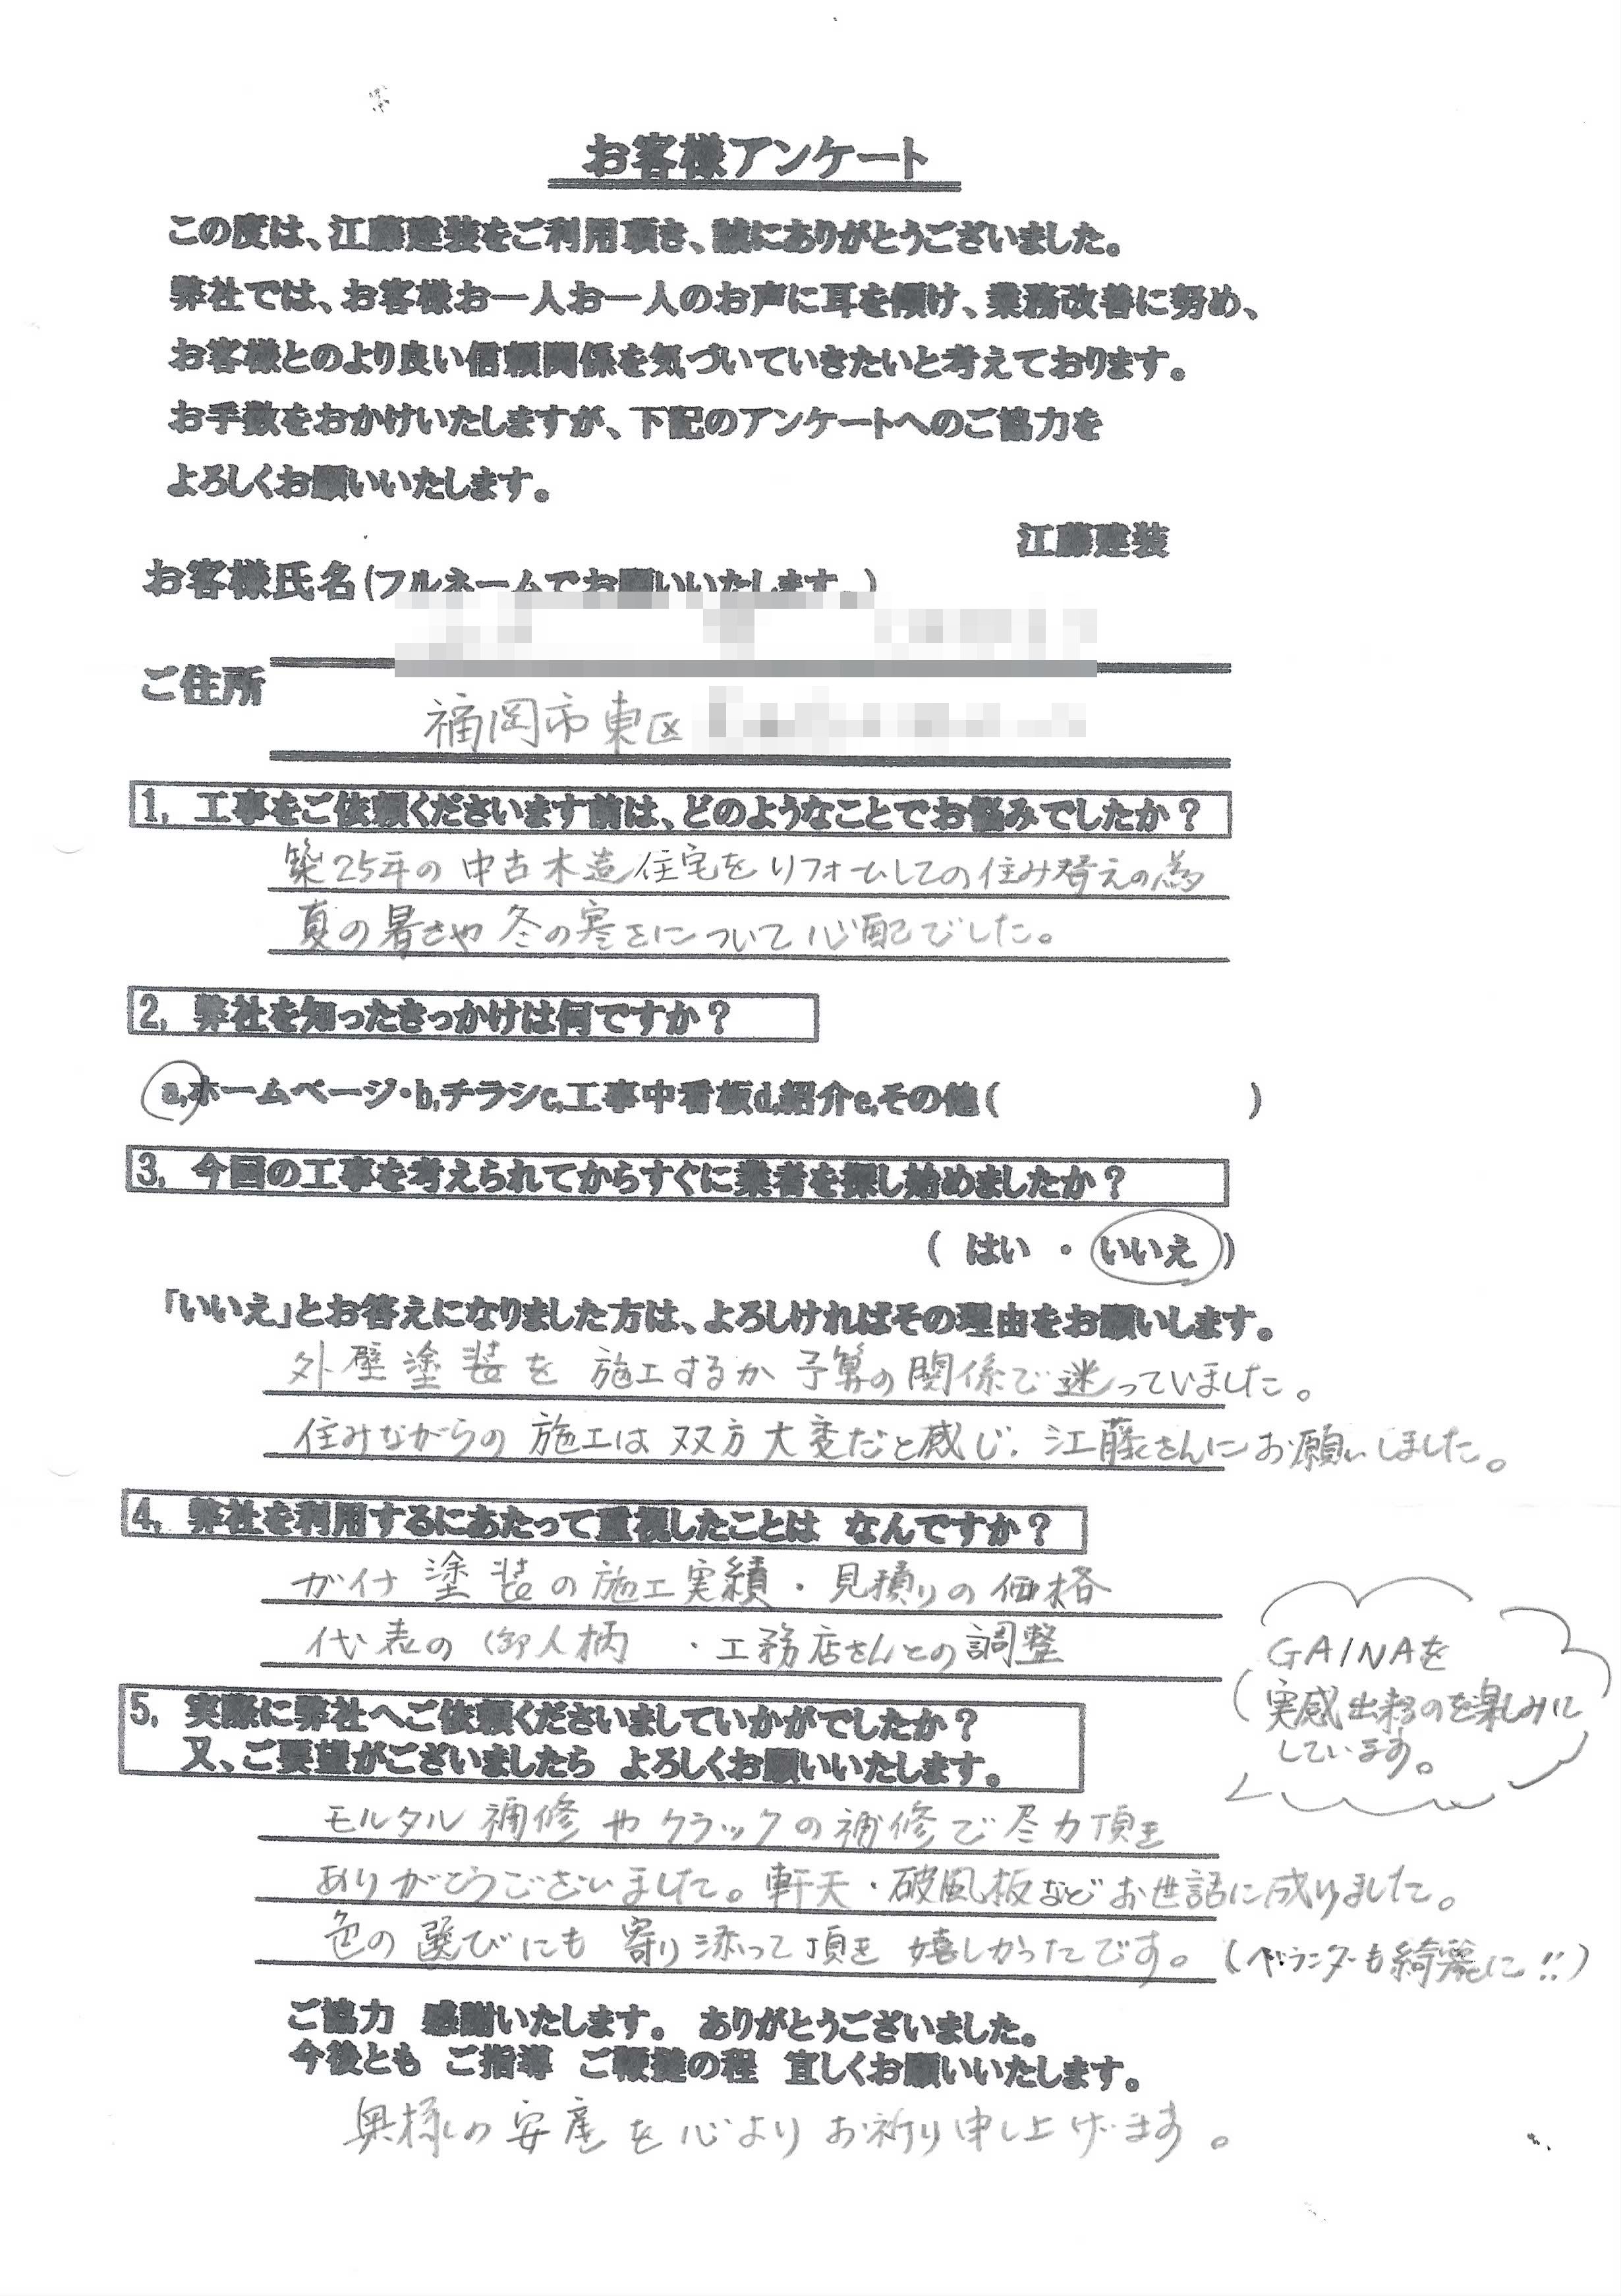 お客様アンケート
この度は、江藤建装をご利用頂き、誠にありがとうございました。
弊社では、お客様お一人お一人のお声に耳を傾け、業務改善に努め、
お客様とのより良い信頼関係を気づいていきたいと考えております。
お手数をおかけいたしますが、下記のアンケートへのご協力を
よろしくお願いいたします。
江藤建装
お客様氏名(フルネームでお願いいたします。)
ご住所
福岡市東区
1, 工事をご依頼くださいます前は、どのようなことでお悩みでしたか?
築25年の中古木造住宅をリフォームしての住み替えの為
夏の暑さや冬の寒さについて心配でした。
2, 弊社を知ったきっかけは何ですか?
a,ホームページ・b,チラシc,工事中看板d,紹介e,その他( )
3, 今回の工事を考えられてからすぐに業者を探し始めましたか?
( はい ・ いいえ )
「いいえ」とお答えになりました方は、よろしければその理由をお願いします。
外壁塗装を施工するか予算の関係で迷っていました。
住みながらの施工は双方大変だと感じ、江藤さんにお願いしました。
4, 弊社を利用するにあたって重視したことは なんですか?
ガイナ塗装の施工実績・見積りの価格
代表の御人柄 ・工務店さんとの調整
GAINAを
実感出来るのを楽しみに
しています。
5, 実際に弊社へご依頼くださいましていかがでしたか?
又、ご要望がございましたら よろしくお願いいたします。
モルタル補修やクラックの補修で尽力頂き
ありがとうございました。軒天・破風板などお世話に成りました。
色の選びにも寄り添って頂き嬉しかったです。(ベランダーも綺麗に!!)
ご協力 感謝いたします。 ありがとうございました。
今後とも ご指導 ご鞭撻の程 宜しくお願いいたします。
奥様の安産を心よりお祈り申し上げます。